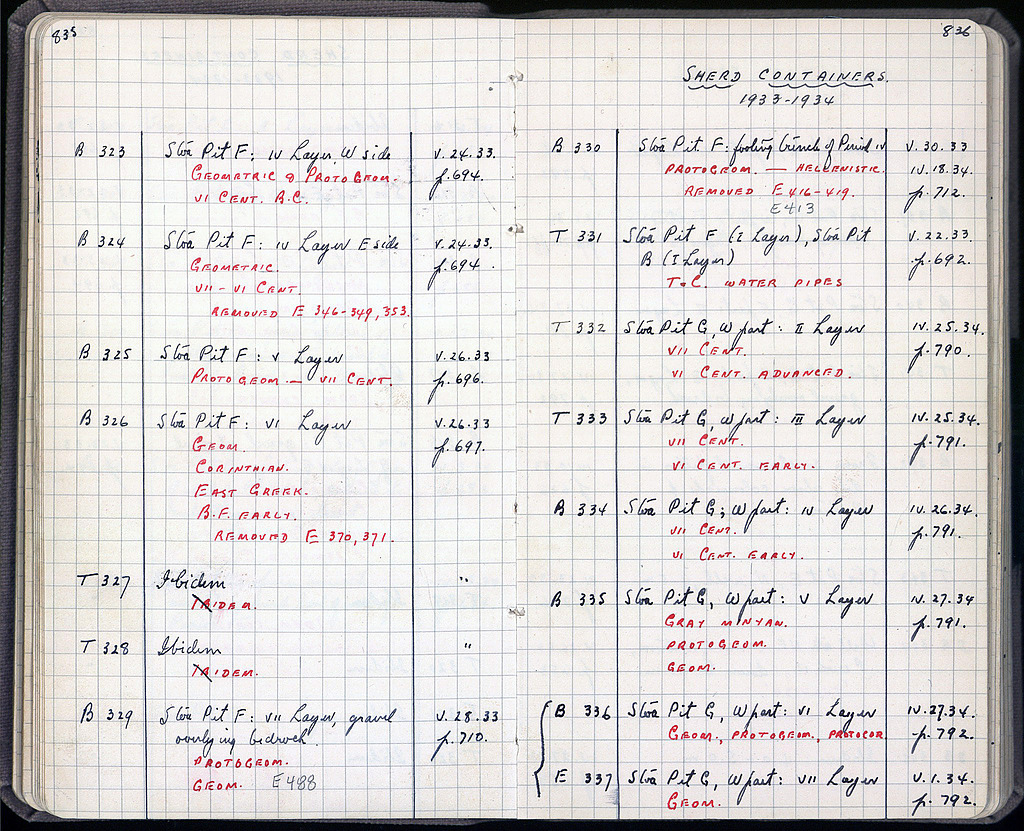 835
B 323 Stoa Pit F: IV Layer, W side V.24.33.
GEOMETRIC & PROTOGEOM. p.694.
VI CENT. B.C.
B 324 Stoa Pit F: IV Layer E side V.24.33.
GEOMETRIC. p.694.
VII - VI CENT.
REMOVED E 346-349, 353.
B 325 Stoa Pit F: V Layer V.26.33
PROTOGEOM. — VII CENT. p.696.
B 326 Stoa Pit F: VI Layer V.26.33
GEOM. p.697.
CORINTHIAN.
EAST GREEK.
B.F. EARLY.
REMOVED E 370, 371.
T 327 Ibidem "
IDEM.
T 328 Ibidem "
IDEM.
B 329 Stoa Pit F: VII Layer, gravel V.28.33
overlying bedrock. p.710.
PROTOGEOM.
GEOM. E488
836
SHERD CONTAINERS.
1933-1934
B 330 Stoa Pit F: footing trench of Period IV V.30.33
PROTOGEOM. — HELLENISTIC. IV.18.34.
REMOVED E 416-419. p.712.
E413
T 331 Stoa Pit F (I Layer), Stoa Pit V.22.33.
B (I Layer) p.692.
T.C. WATER PIPES
T 332 Stoa Pit G, W part: II Layer IV.25.34.
VII CENT. p.790.
VI CENT. ADVANCED.
T 333 Stoa Pit G, W part: III Layer IV.25.34.
VII CENT. p.791.
VI CENT. EARLY.
B 334 Stoa Pit G; W part: IV Layer IV.26.34.
VII CENT. p.791.
VI CENT. EARLY.
B 335 Stoa Pit G, W part: V Layer IV.27.34
GRAY MINYAN. p.791.
PROTOGEOM.
GEOM.
B 336 Stoa Pit G, W part: VI Layer IV.27.34.
GEOM., PROTOGEOM., PROTOCOR. p.792.
E 337 Stoa Pit G, W part: VII Layer V.1.34.
GEOM. p.792.